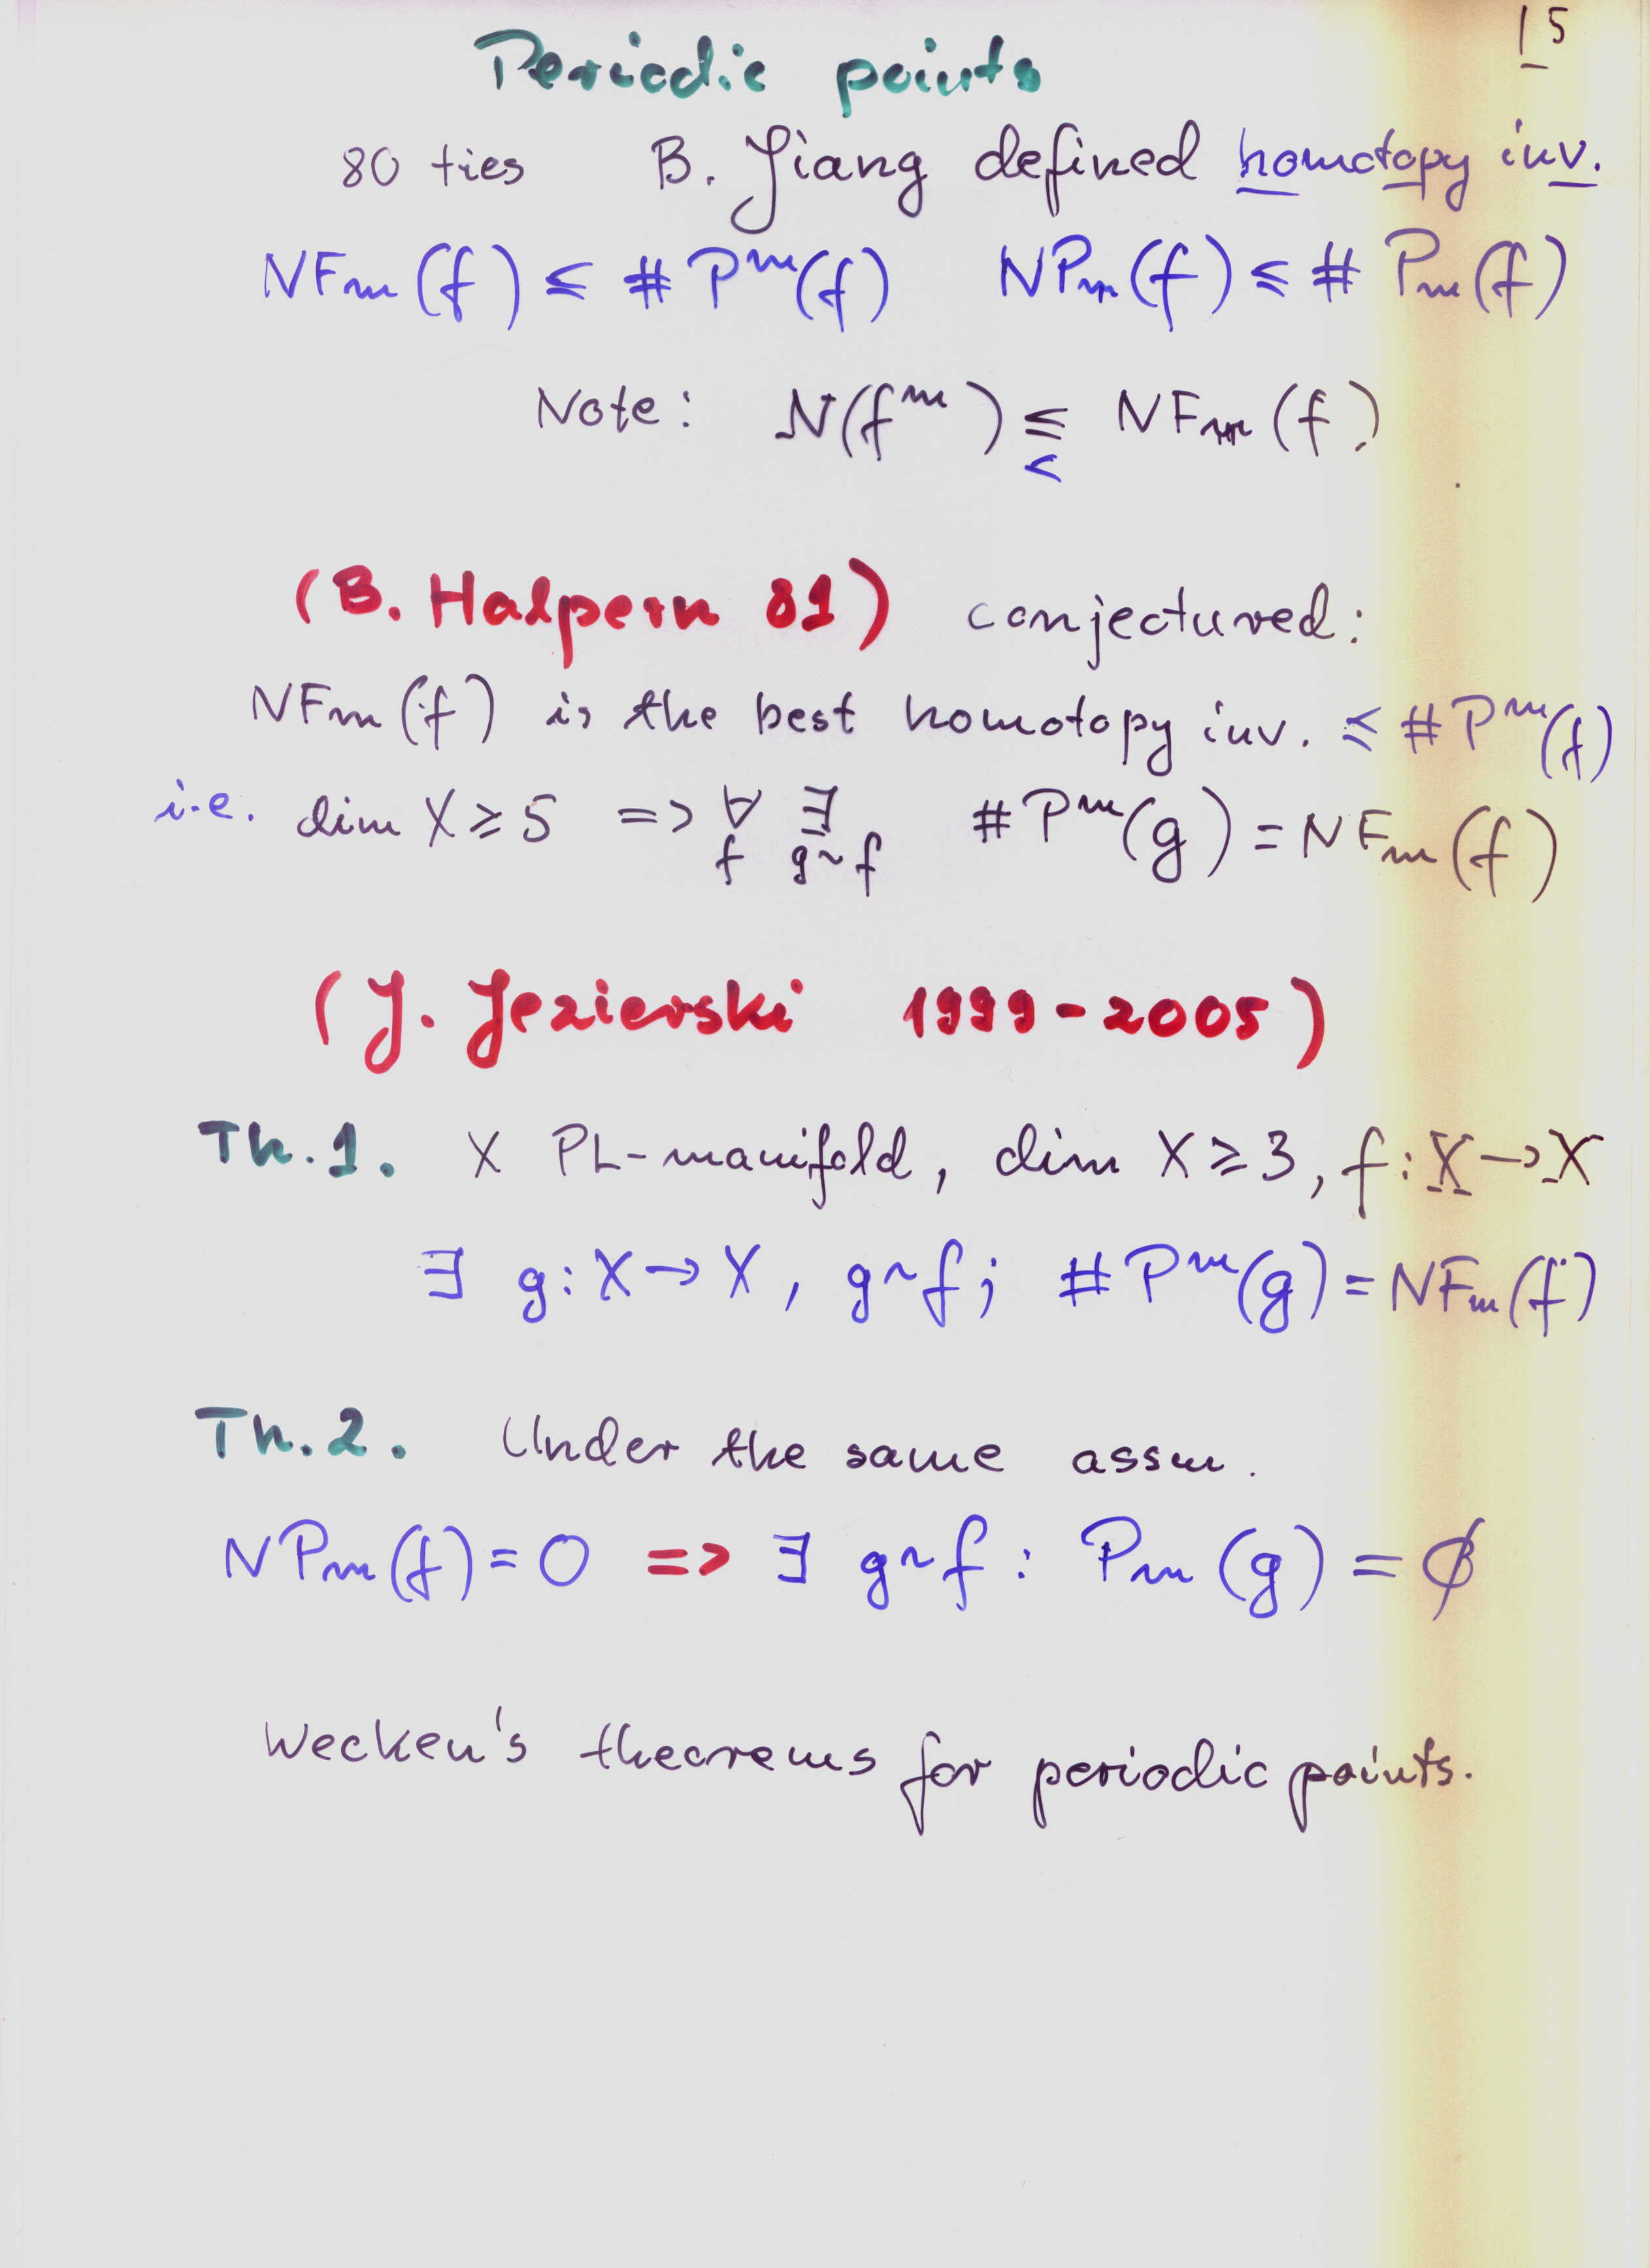 15
Periodic points
80 ties B. Jiang defined homotopy inv.
NFm(f) ≤ # P^m(f) NPm(f) ≤ # Pm(f)
Note: N(f^m) ≤ NFm(f)
<
(B. Halpern 81) conjectured:
NFm(f) is the best homotopy inv. ≤ # P^m(f)
i.e. dim X ≥ 5 => ∀ ∃ # P^m(g) = NFm(f)
f g~f
(J. Jezierski 1999-2005)
Th.1. X PL-manifold, dim X ≥ 3, f: X → X
∃ g: X → X, g~f; # P^m(g) = NFm(f)
Th.2. Under the same assm.
NPm(f) = 0 => ∃ g~f : Pm(g) = ∅
Wecken's theorems for periodic points.